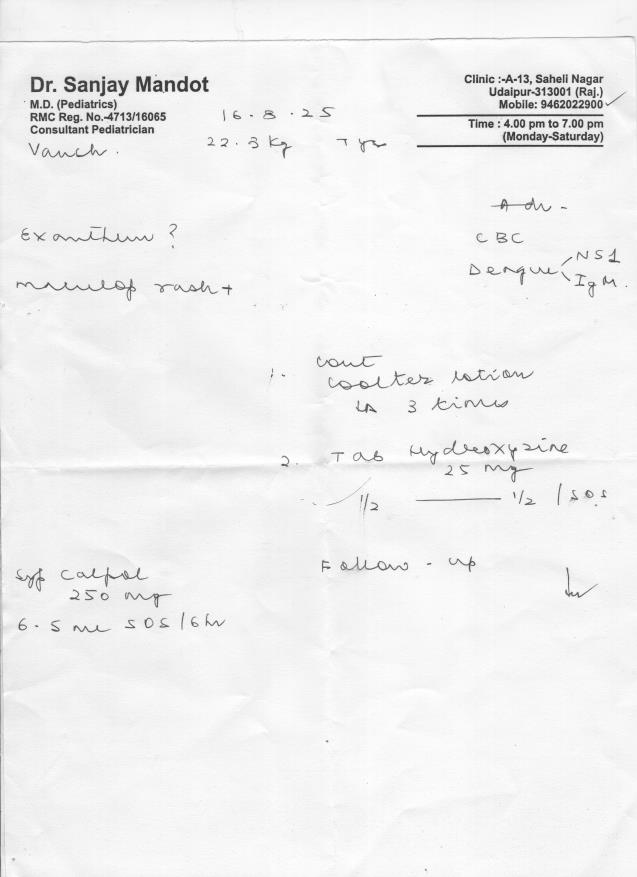 Dr. Sanjay Mandot
M.D. (Pediatrics)
RMC Reg. No.-4713/16065
Consultant Pediatrician
Clinic :-A-13, Saheli Nagar
Udaipur-313001 (Raj.)
Mobile: 9462022900
Time : 4.00 pm to 7.00 pm
(Monday-Saturday)
16.8.25
Vanch.
22.3 kg 7 yrs
Adv -
CBC
Dengue NS1
IgM.
Exanthem ?
maculop rash +
1. cont
lotion
LA 3 times
2. Tab Hydroxyzine
25 mg
1/2 ——— 1/2 / SOS
Follow - up
Syp Calpol
250 mg
6.5 ml SOS / 6 hr